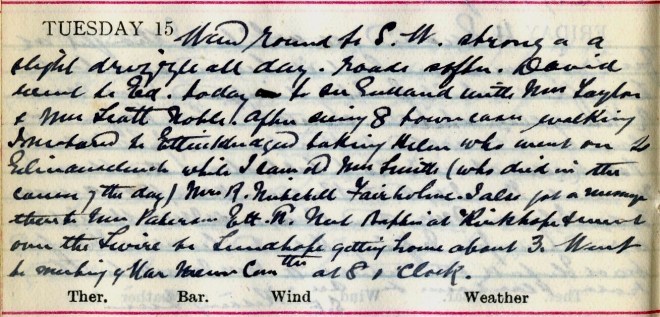 TUESDAY 15 Wind round to S.W. strong & a
slight drizzle all day. Roads softer. David
went to Ed. today to see England with Mrs Taylor
& Mrs Scott Noble. After seeing 8 town cases walking
I motored to Ettrickbridgend taking Helen who went on to
while I saw old Mrs Smith (who died in the
course of the day) Mrs R. Mitchell Fairholme. I also got a message
there to Mrs Paterson Ett. at Kirkhope & went
over the Swire to Sundhope getting home about 3. Went
to meeting of War Mem. Comttee at 8 o'clock.
Ther. Bar. Wind Weather